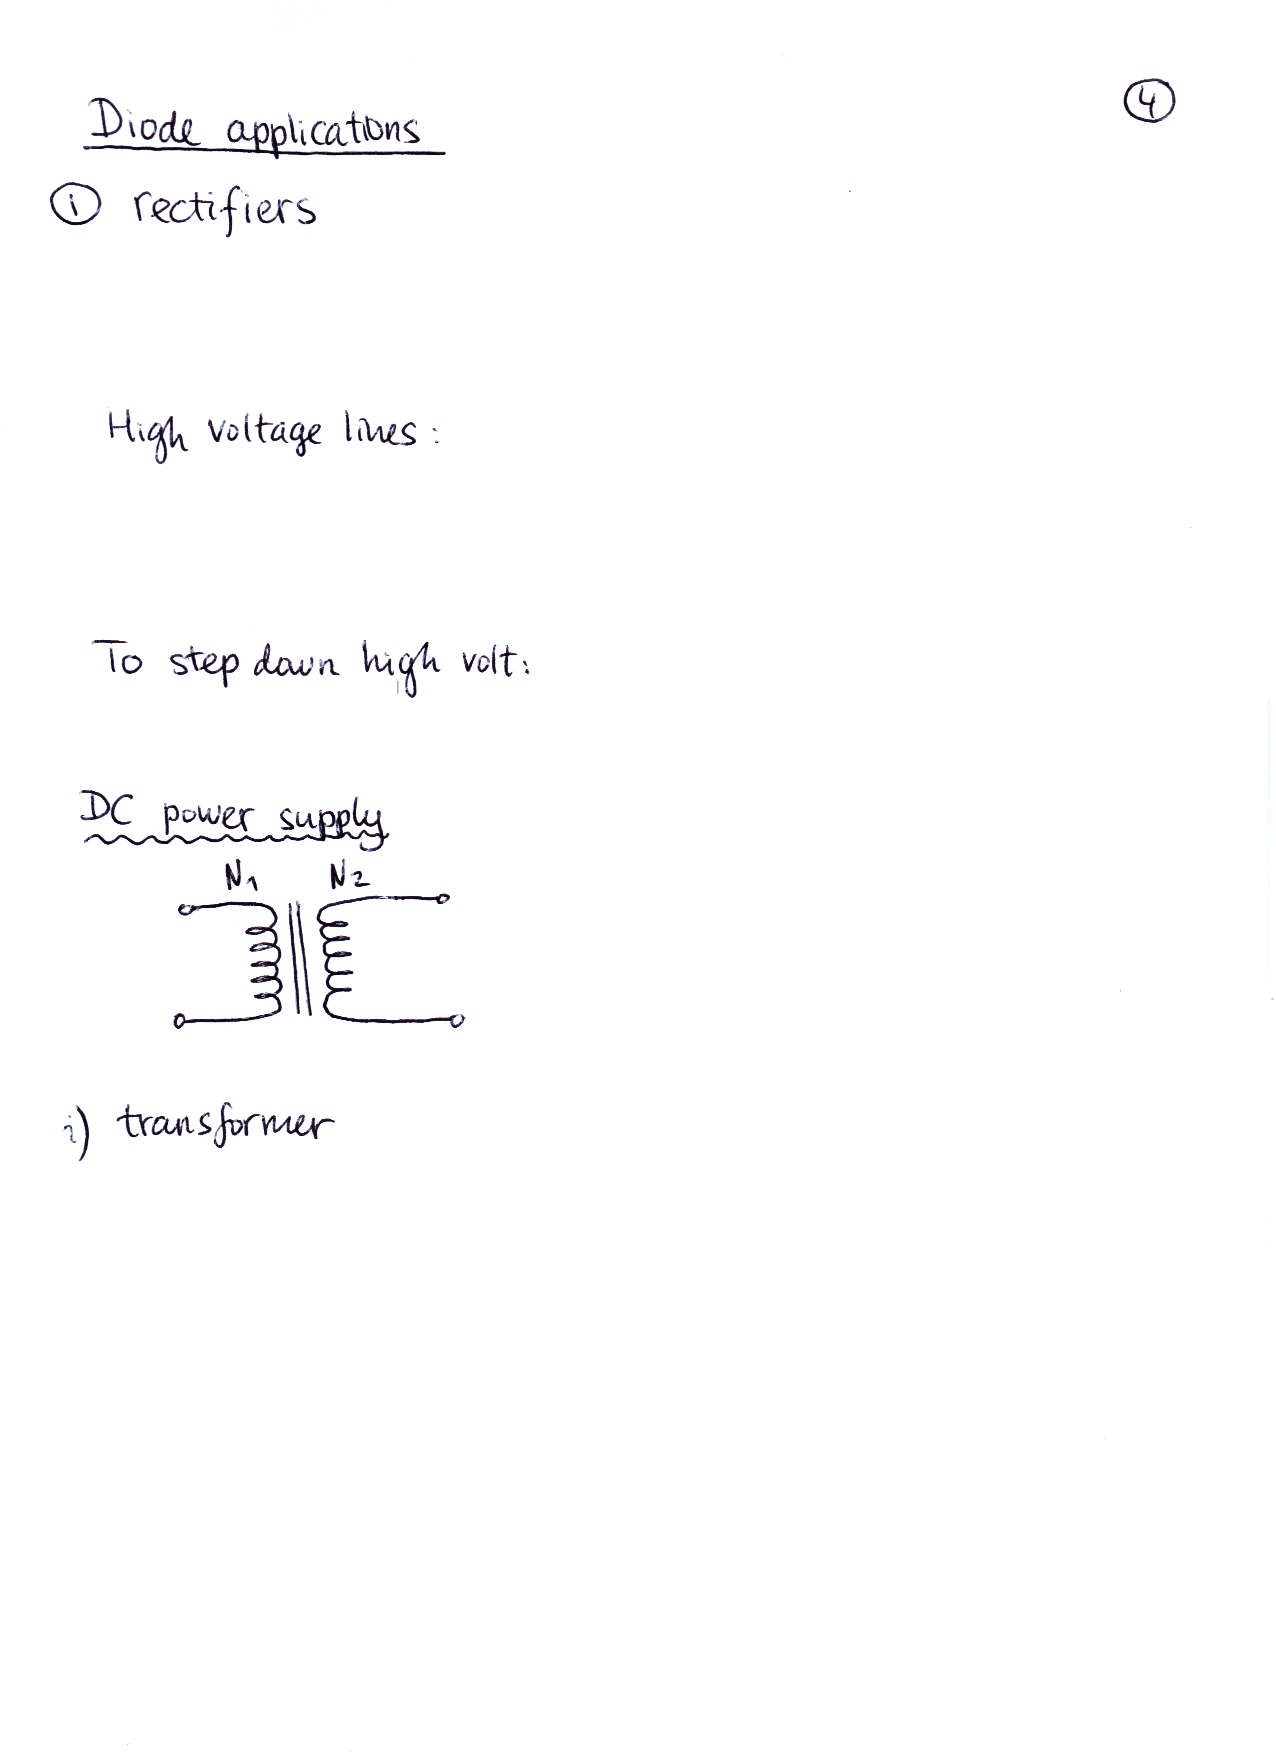 4
Diode applications
i rectifiers
High voltage lines:
To step down high volt:
DC power supply
N1 N2
i) transformer